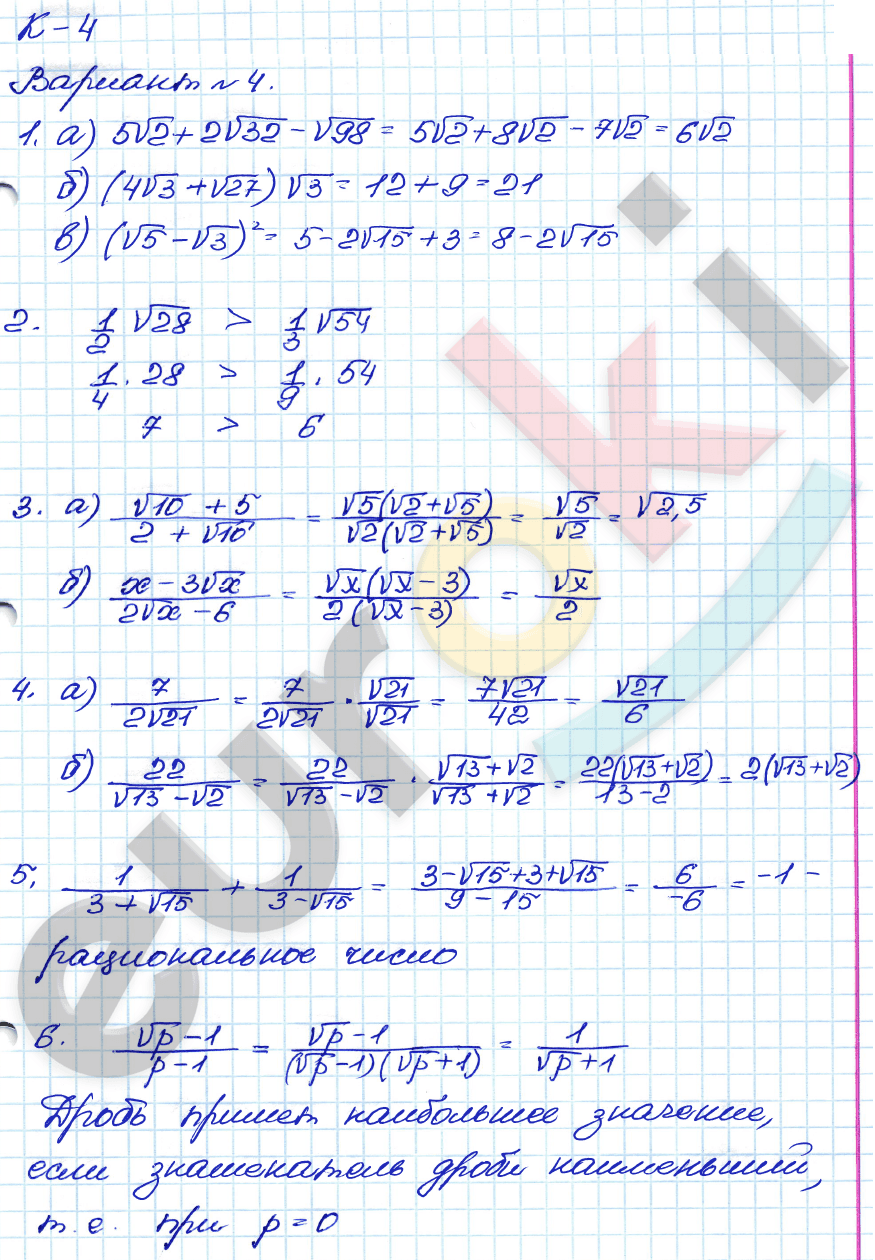 К-4
Вариант №4.
1. а) 5√2 + 2√32 - √98 = 5√2 + 8√2 - 7√2 = 6√2
б) (4√3 + √27) √3 = 12 + 9 = 21
в) (√5 - √3)² = 5 - 2√15 + 3 = 8 - 2√15
2. 1/2 √28 > 1/3 √54
1/4 · 28 > 1/9 · 54
7 > 6
3. а) (√10 + 5)/(2 + √10) = (√5(√2 + √5))/(√2(√2 + √5)) = √5/√2 = √2,5
б) (x - 3√x)/(2√x - 6) = (√x(√x - 3))/(2(√x - 3)) = √x/2
4. а) 7/(2√21) = 7/(2√21) · √21/√21 = 7√21/42 = √21/6
б) 22/(√13 - √2) = 22/(√13 - √2) · (√13 + √2)/(√13 + √2) = 22(√13 + √2)/(13 - 2) = 2(√13 + √2)
5. 1/(3 + √15) + 1/(3 - √15) = (3 - √15 + 3 + √15)/(9 - 15) = 6/-6 = -1 -
рациональное число
6. (√p - 1)/(p - 1) = (√p - 1)/((√p - 1)(√p + 1)) = 1/(√p + 1)
Дробь примет наибольшее значение,
если знаменатель дроби наименьший,
т.е. при p = 0
euroki